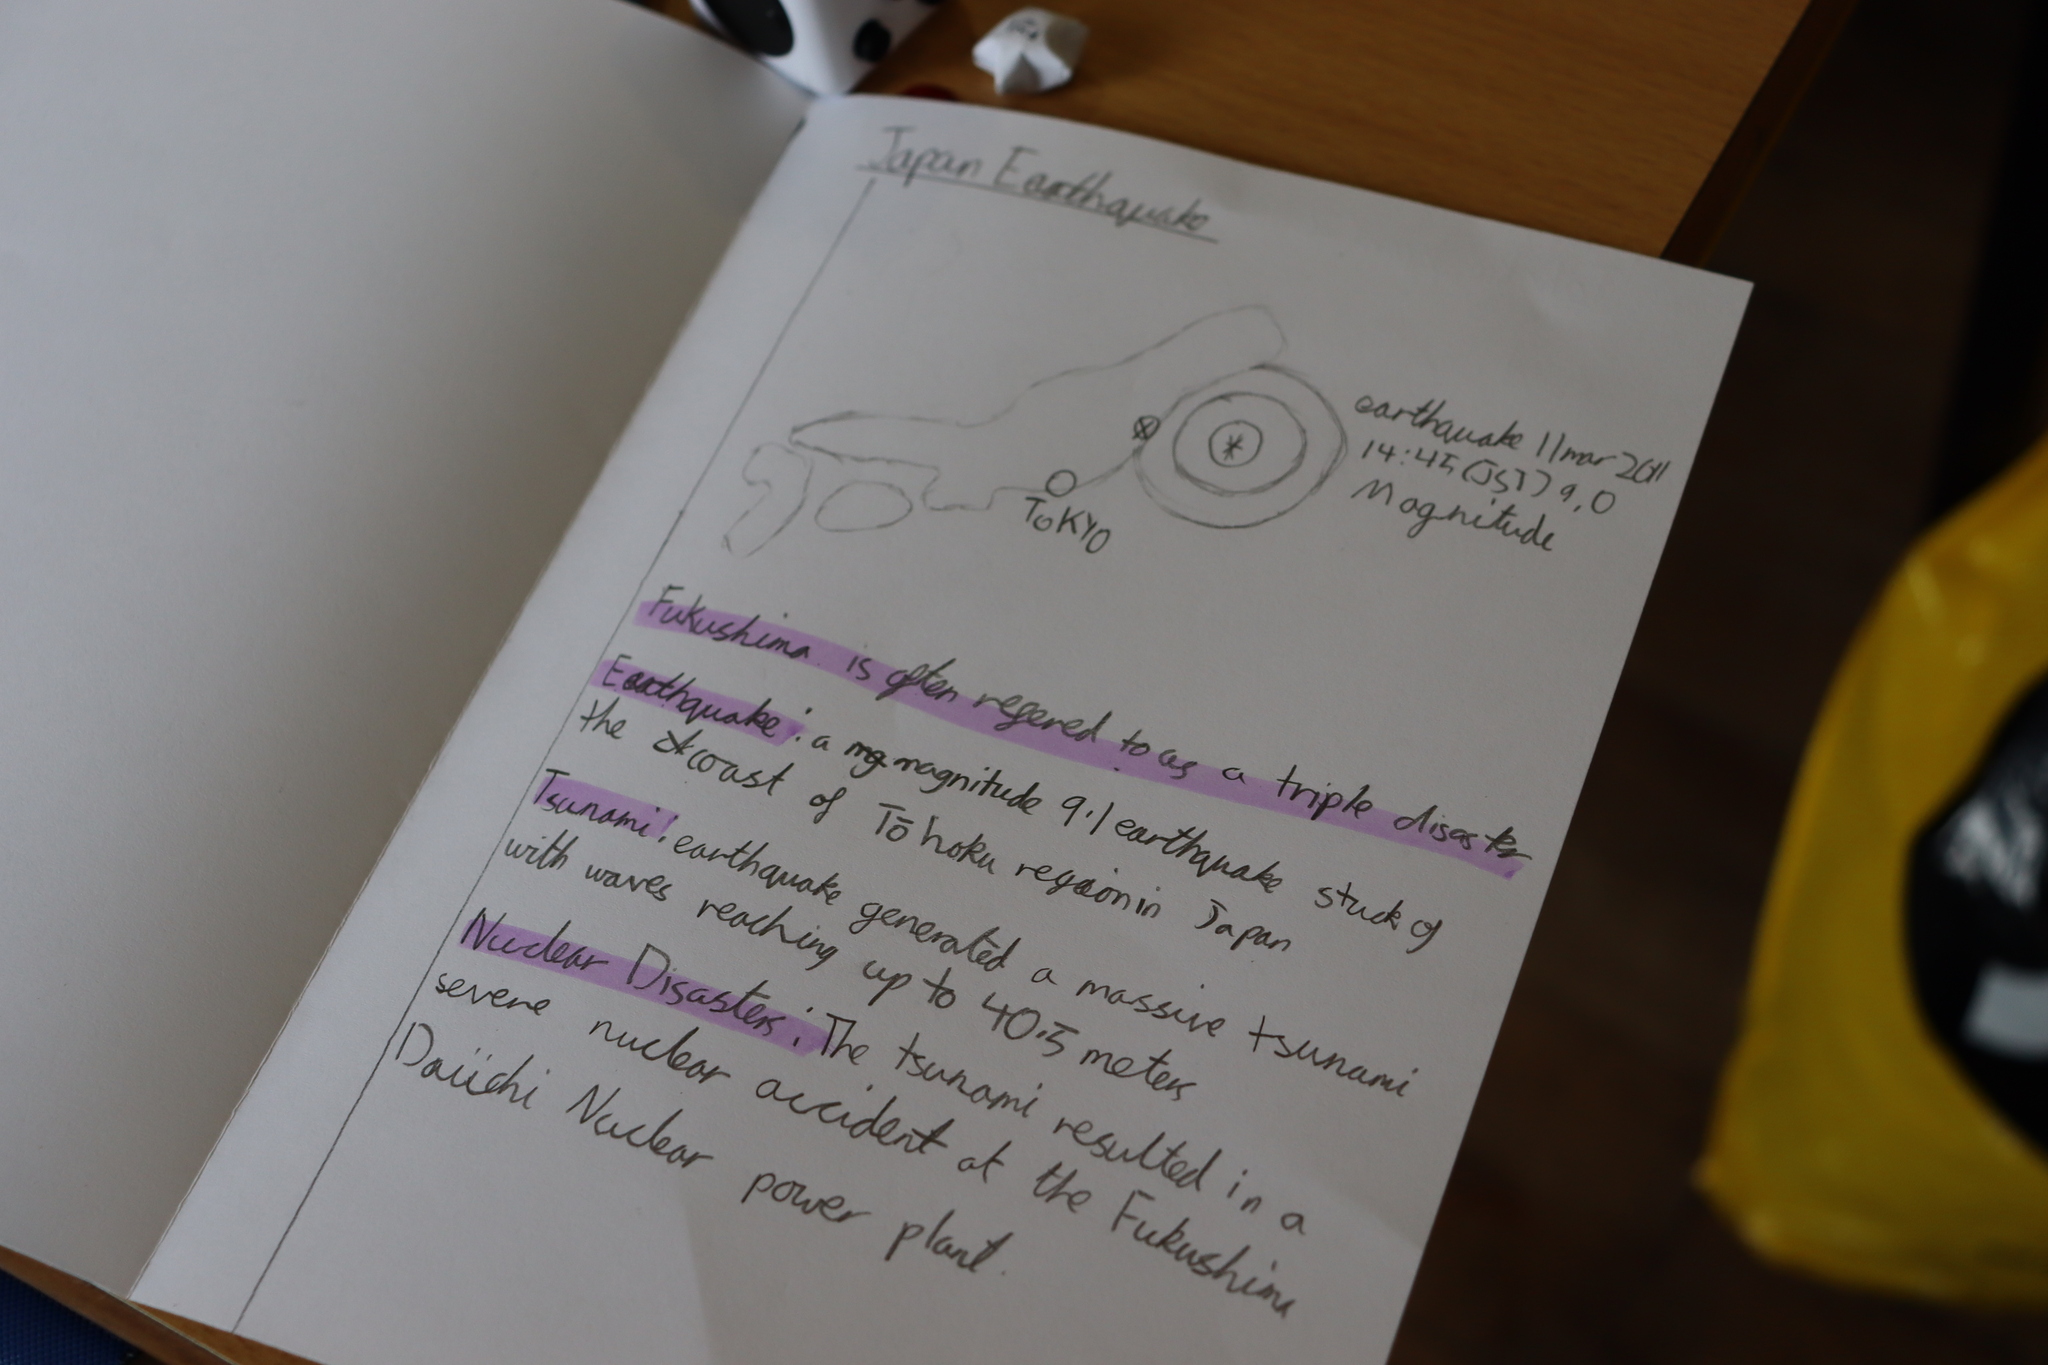 Japan Earthquake
earthquake 11 mar 2011
14:45 (JST) 9.0
Magnitude
TOKYO
Fukushima is often regered to as a triple disaster
Earthquake: a mg magnitude 9.1 earthquake stuck of
the coast of Tōhoku region in Japan
Tsunami: earthquake generated a massive tsunami
with waves reaching up to 40.5 meters
Nuclear Disasters: The tsunami resulted in a
severe nuclear accident at the Fukushima
Daiichi Nuclear power plant.